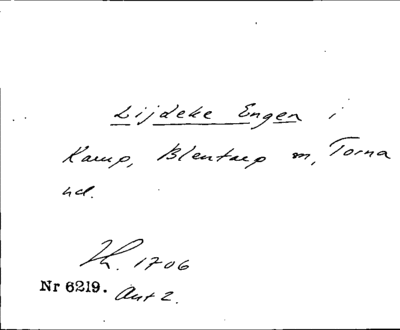 Lijdeke Engen i
Kamp, Blentarp m, Torna
hd.
Th. 1706
Nr 6219. Aut 2.